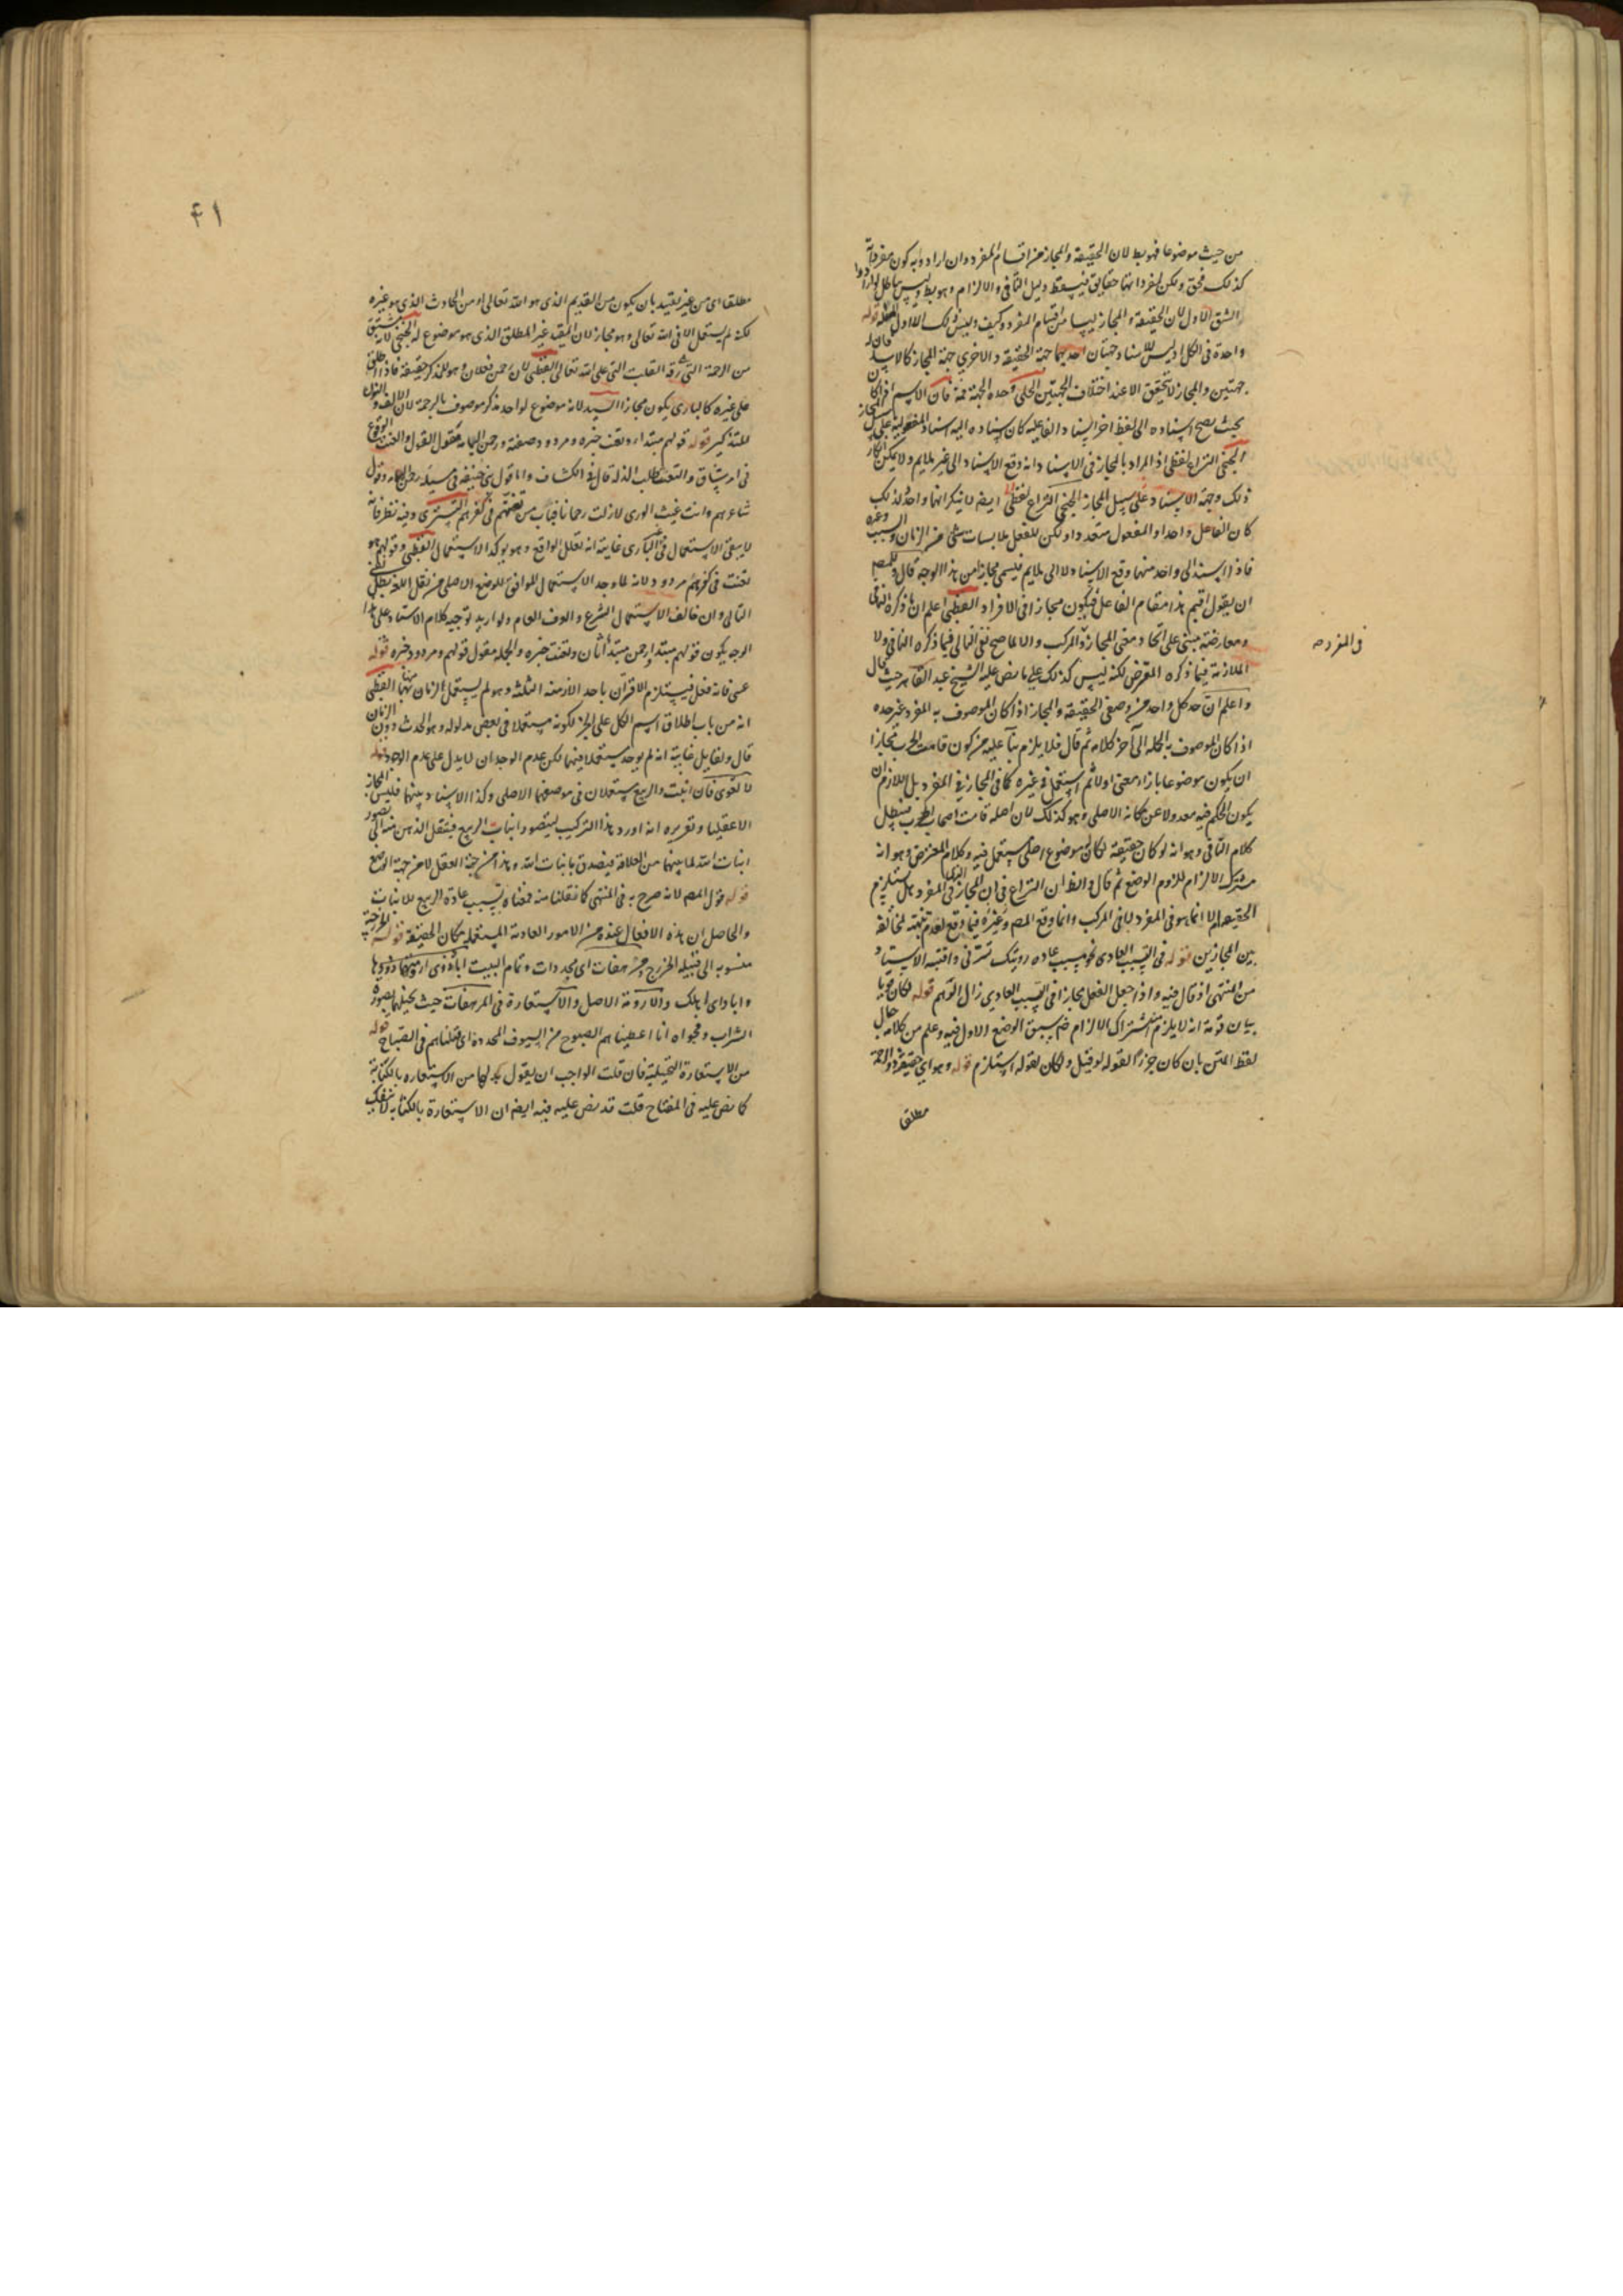 من حيث موضوعا فهو بط لان الحقيقة والمجاز من اقسام المفرد وان ارادوا به كون مفرداته
كذلك فحق ولكن لمفرداتها حقايق فيسقط دليل النافى والالزام وهو بط وليس بباطل ارادوا
الشق الاول لان الحقيقة والمجاز ليسا من اقسام المفرد وكيف وليس ذلك الاول قوله
واحدة فى الكل اذ ليس للاسناد جهتان احديهما جهة الحقيقة والاخرى جهة المجاز كالاسد فان له
جهتين والمجاز لا يتحقق الا عند اختلاف الجهتين الحلى وحده الجهة فان الاسم
بحيث يصح اسناده الى لفظ اخر اسناد الفاعلية كان اسناده اليه اسناد المفعولية على سبيل المجاز
الخنجى النزاع لفظى اذ المراد بالمجاز فى الاسناد انه وقع الاسناد الى غير ملايم ولا يمكن انكار
ذلك وجهة الاسناد على سبيل المجاز الخنجى النزاع لفظى ايضا لانكم
كان الفاعل واحدا او المفعول متعددا ولكن للفعل ملابسات شتى من الزمان والسبب وغيره
فاذا اسند الى واحد منهما وقع الاسناد لا الى ملايم فيسمى مجازا من هذا الوجه قال وللمصنف
ان يقول اقيم هذا مقام الفاعل فيكون مجازا فى الافراد القطبى اعلم ان ما ذكره النافى
ومعارضته مبنى على اتحاد معنى المجاز والمركب والا لما صح نفى التالى فيما ذكره النافى ولا
فى المفرد صح
الملازمة فيما ذكره المعترض لكنه ليس كذلك على ما نص عليه الشيخ عبد القاهر حيث قال
واعلم ان حد كل واحد من وصفى الحقيقة والمجاز اذا كان الموصوف به المفرد غير حده
اذا كان الموصوف به الجملة الى آخر كلامه ثم قال فلا يلزم بناء عليه من كون قامت الحرب مجازا
ان يكون موضوعا بازاء معنى اولا ثم استعمل فى غيره كما فى المجاز فى المفرد بل اللازم ان
يكون الحكم فيه معدولا عن مكانه الاصلى وهو كذلك لان اصله قامت اصحاب الحرب فيبطل
كلام النافى وهو انه لو كان حقيقة لكان لموضوع اصلى يستعمل فيه وكلام المعترض وهو انه
مشترك الالزام للزوم الوضع ثم قال والظ ان النزاع فى ان المجاز فى المفرد هل يستلزم
الحقيقة ام لا انما هو فى المفرد لا فى المركب وانما وقع المصنف وغيره فيما وقع لعدم تنبهه لمخالفة
بين المجازين قوله فى التسبب العادى نحو بسبب عادة رويتك تسرنى واقتبسه الاستاد
من المنتهى اذ قال فيه واذا جعل الفعل مجازا فى التسبب العادى زال التوهم قوله لكان قويا
بيان قوته انه لا يلزم منه اشتراك الالزام ضم سبق الوضع الاول فيه وعلم من كلامه حال
لفظ المتن بان كان جزءا لقوله لو قيل ولكان لقوله استلزم قوله وهو اى حقيقة ذو الرحمة
مطلقا
٤١
مطلقا اى من غير تقييد بان يكون من القديم الذى هو الله تعالى او من الحادث الذى هو غيره
لكنه لم يستعمل الا فى الله تعالى وهو مجاز لان المقيد غير المطلق الذى هو موضوع له الخنجى لانه مشتق
من الرحمة التى رقة القلب التى على الله تعالى القطبى لان رحمن فعلان وهو للمذكر حقيقة فاذا اطلق
على غيره كالبارى يكون مجازا السيد لانه موضوع لواحد مذكر موصوف بالرحمة لان الالف والنون
للتذكير قوله قولهم مبتداء وتعنت خبره ومردود صفته ورحمن اليمامة مقول القول والعنت الوقوع
فى امر شاق والتعنت طلب الذلة قال فى الكشاف واما قول بنى حنيفة فى مسيلمة رحمن اليمامة وقول
شاعرهم وانت غيث الورى لازلت رحمانا فباب من تعنتهم فى كفرهم التسترى وفيه نظر فانه
لا ينفى الاستعمال فى البارى غايته انه تعلل الواقع وهو يوكد الاستعمال القطبى وقولهم هو
تعنت فى كفرهم مردود لانه لما وجد الاستعمال الموافق للوضع الاصلى من نقل اللغة بطل نفى
التالى وان خالف الاستعمال الشرع والعرف العام ولو اريد توجيه كلام الاستاد على هذا
الوجه يكون قولهم مبتداء ورحمن مبتداء ثان وتعنت خبره والجملة مقول قولهم ومردود خبره قوله
عسى فانه فعل فيستلزم الاقتران باحد الازمنة الثلثة وهو لم يستعمل لزمان منها القطبى
انه من باب اطلاق اسم الكل على الجزء لكونه مستعملا فى بعض مدلوله وهو الحدث دون الزمان
قال ولقايل غايته انه لم يوجد مستعملا فيهما لكن عدم الوجدان لا يدل على عدم الوجود قوله
لا لغوى فان انبت والربيع مستعملان فى موضعهما الاصلى وكذا الاسناد بينهما فليس المجاز
الا عقليا وتقريره انه اورد هذا التركيب ليتصور انبات الربيع فينتقل الذهن منه الى تصور
انبات الله لما بينهما من العلاقة فيصدق بانبات الله وهذا من جهة العقل لا من جهة الوضع
قوله قول المصنف لانه صرح به فى المنتهى كما نقلنا منه فمعناه تسبب عادة الربيع للانبات
والحاصل ان هذه الافعال عنده من الامور العادية المستعملة مكان الحقيقة قوله الخزرجية
منسوبه الى قبيلة الخزرج ومرهفات اى مجددات وتمام البيت اباد ذوى ارومتها ذووها
واباد اى اهلك والارومة الاصل والاستعارة فى المرهفات حيث تخيلها بصورة
الشراب ومجواه انا اعطيناهم الصبوح من السيوف المحددة اى قتلناهم فى الصباح قوله
من الاستعارة التخيلية فان قلت الواجب ان يقول بدلها من الاستعارة بالكناية
كما نص عليه فى المفتاح قلت قد نص عليه فيه ايضا ان الاستعارة بالكناية لا تنفك